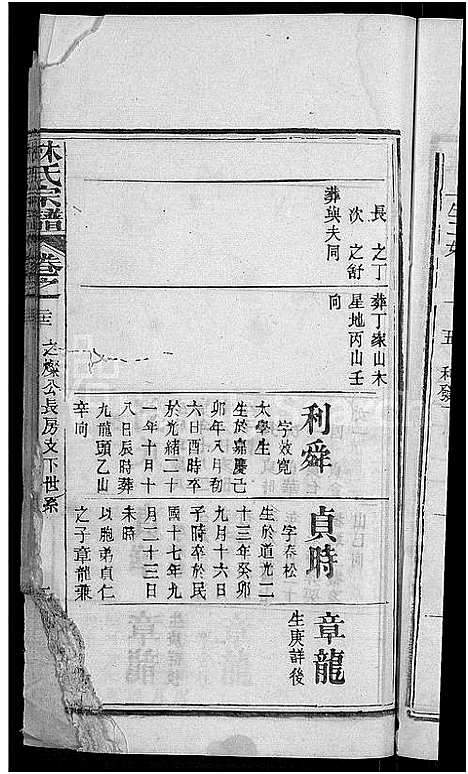 長 之丁
次 之舒
葬與夫同
葬丁家山木
星地丙山壬
向
利舜
字效寬
太學生
生於嘉慶己
卯年八月初
六日酉時卒
於光緒二十
一年十月十
八日辰時葬
九龍頭乙山
辛向
貞時
字春松
生於道光二
十三年癸卯
九月十六日
子時卒於民
國十七年九
月二十三日
未時
以胞弟貞仁
之子章龍兼
章龍
生庚詳後
林氏宗譜 卷之一
之燦公長房文下世系